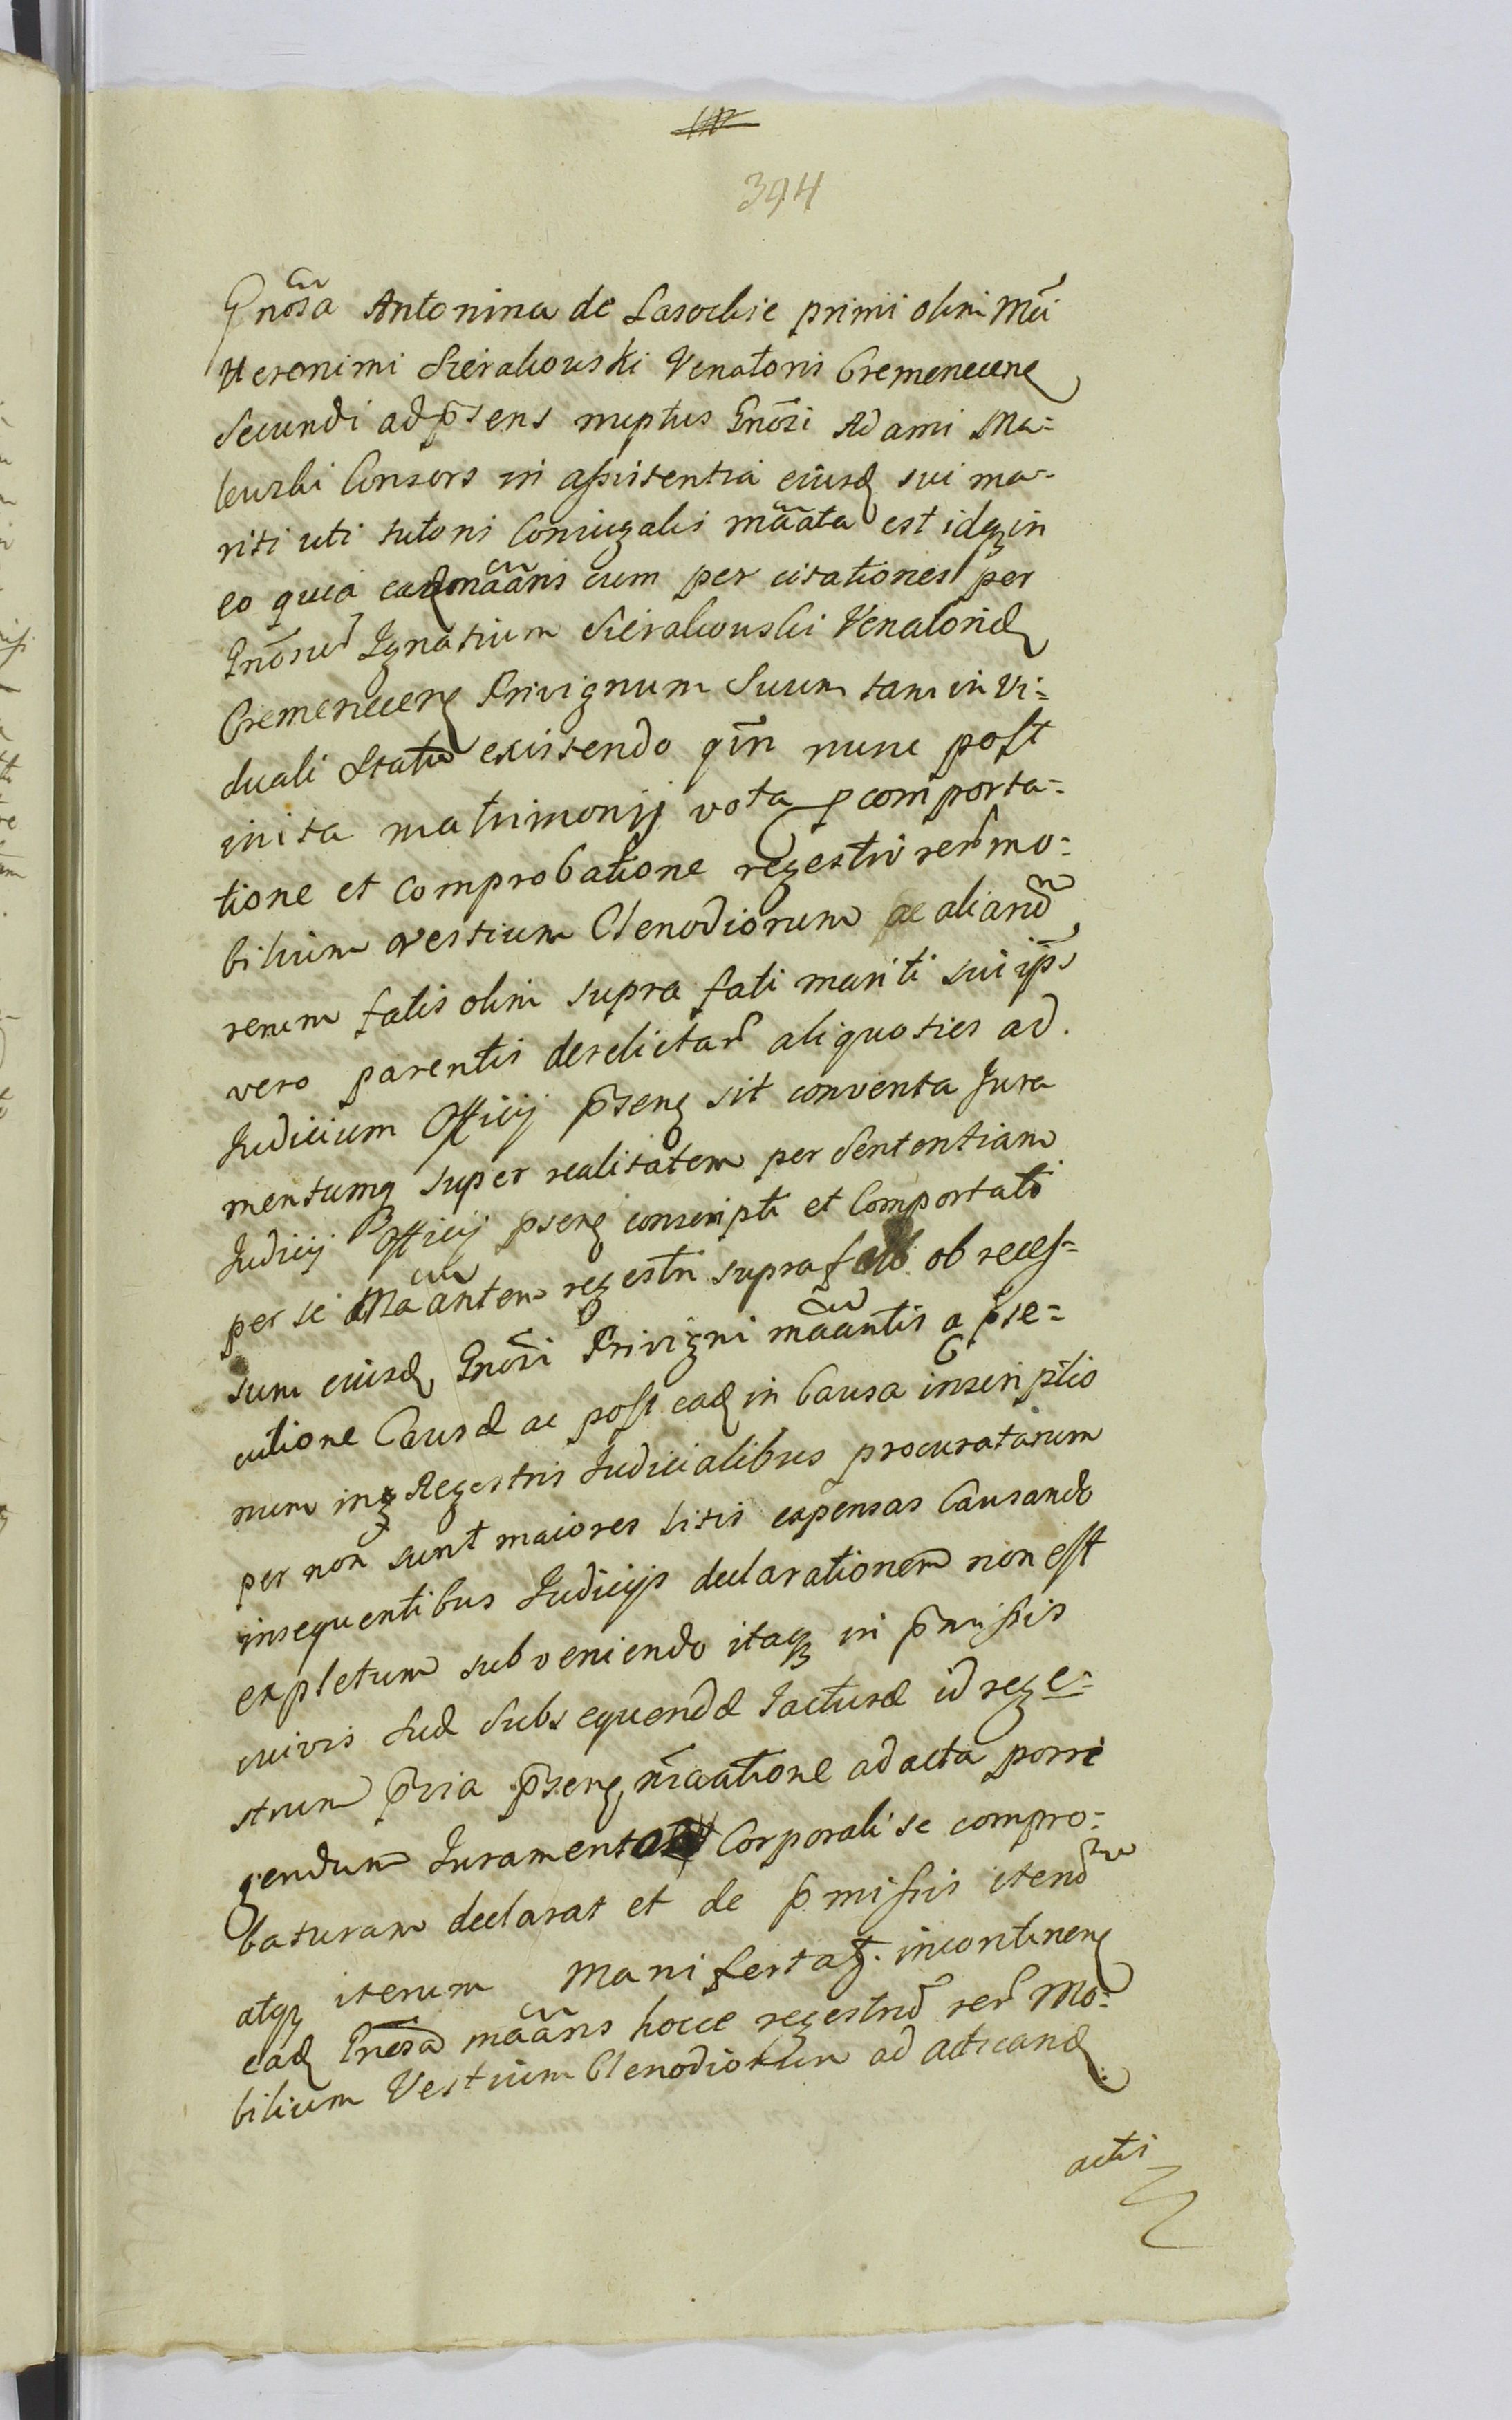 394
Gnõsa Antonina de Lasockie primi olim Mci
Heronimi Sierakouski Venatoris Cremenecen̄
Secundi ad p̄sens nuptus Gnõsi Adami Ma=
kuzki Consors in assistentia eiusd sui ma-
riti uti tutoris Coniugalis mãata est idq in
eo quia ead mãans cum per citationes per
Gnõsum Ignatium Sierakouski Venatorid
Cremenecen̄ Privignum Suum tam in Vi=
duali Statu existendo qm̄ nunc post
inita matrimonij vota p comporta=
tione et comprobatione regestri rer̄ mo=
bilium vestium Clenodiorum ac aliard
rerum fatis olim supra fati mariti sui ips
vero parentis derelictar̄ aliquoties ad
Judicium Officij p̄sen̄ sit conventa Jura
mentumq super realitatem per Sententiam
Judicij Officij psen̄ conscripti et Comportati
per se Maãntem regestri supra fati ob reces=
sum eiusd Gnõsi Privigni mãantis a pse=
cutione Causæ ac post ead in Causa inscriptio
num inq Regestris Judicialibus procuratarum
per non sunt maiores litis expensas Causando
insequentibus Judicijs declarationem non est
expletum subveniendo itaq in p̄missis
cuivis suæ Subsequendæ Jacturæ id rege=
strum p̄via p̄sen̄ mãatione ad acta porri
gendum Juramento Corporali se compro=
baturam declarat et de p̄missis itend
atq iterum Manifestat. incontinen̄
ead Gnõsa mãans hocce regestrum rer̄ Mo=
bilium Vestium Clenodiorum ad acticand
actis